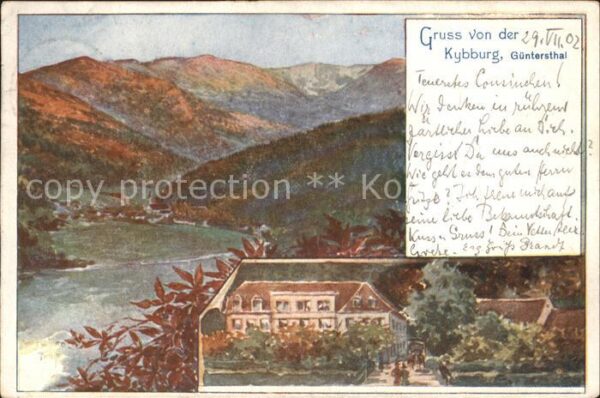 Gruss von der 29.VII.02
Kybburg, Güntersthal
Teuerstes Cousinchen!
Wir denken in rührend
zärtlicher Liebe an Dich.
Vergisst Du uns auch nicht?
Wie geht es dem guten Herrn
? Ich freue mich auf
seine liebe Bekanntschaft.
Kuss u. Gruss! Dein Vetter
copy protection ** Ko